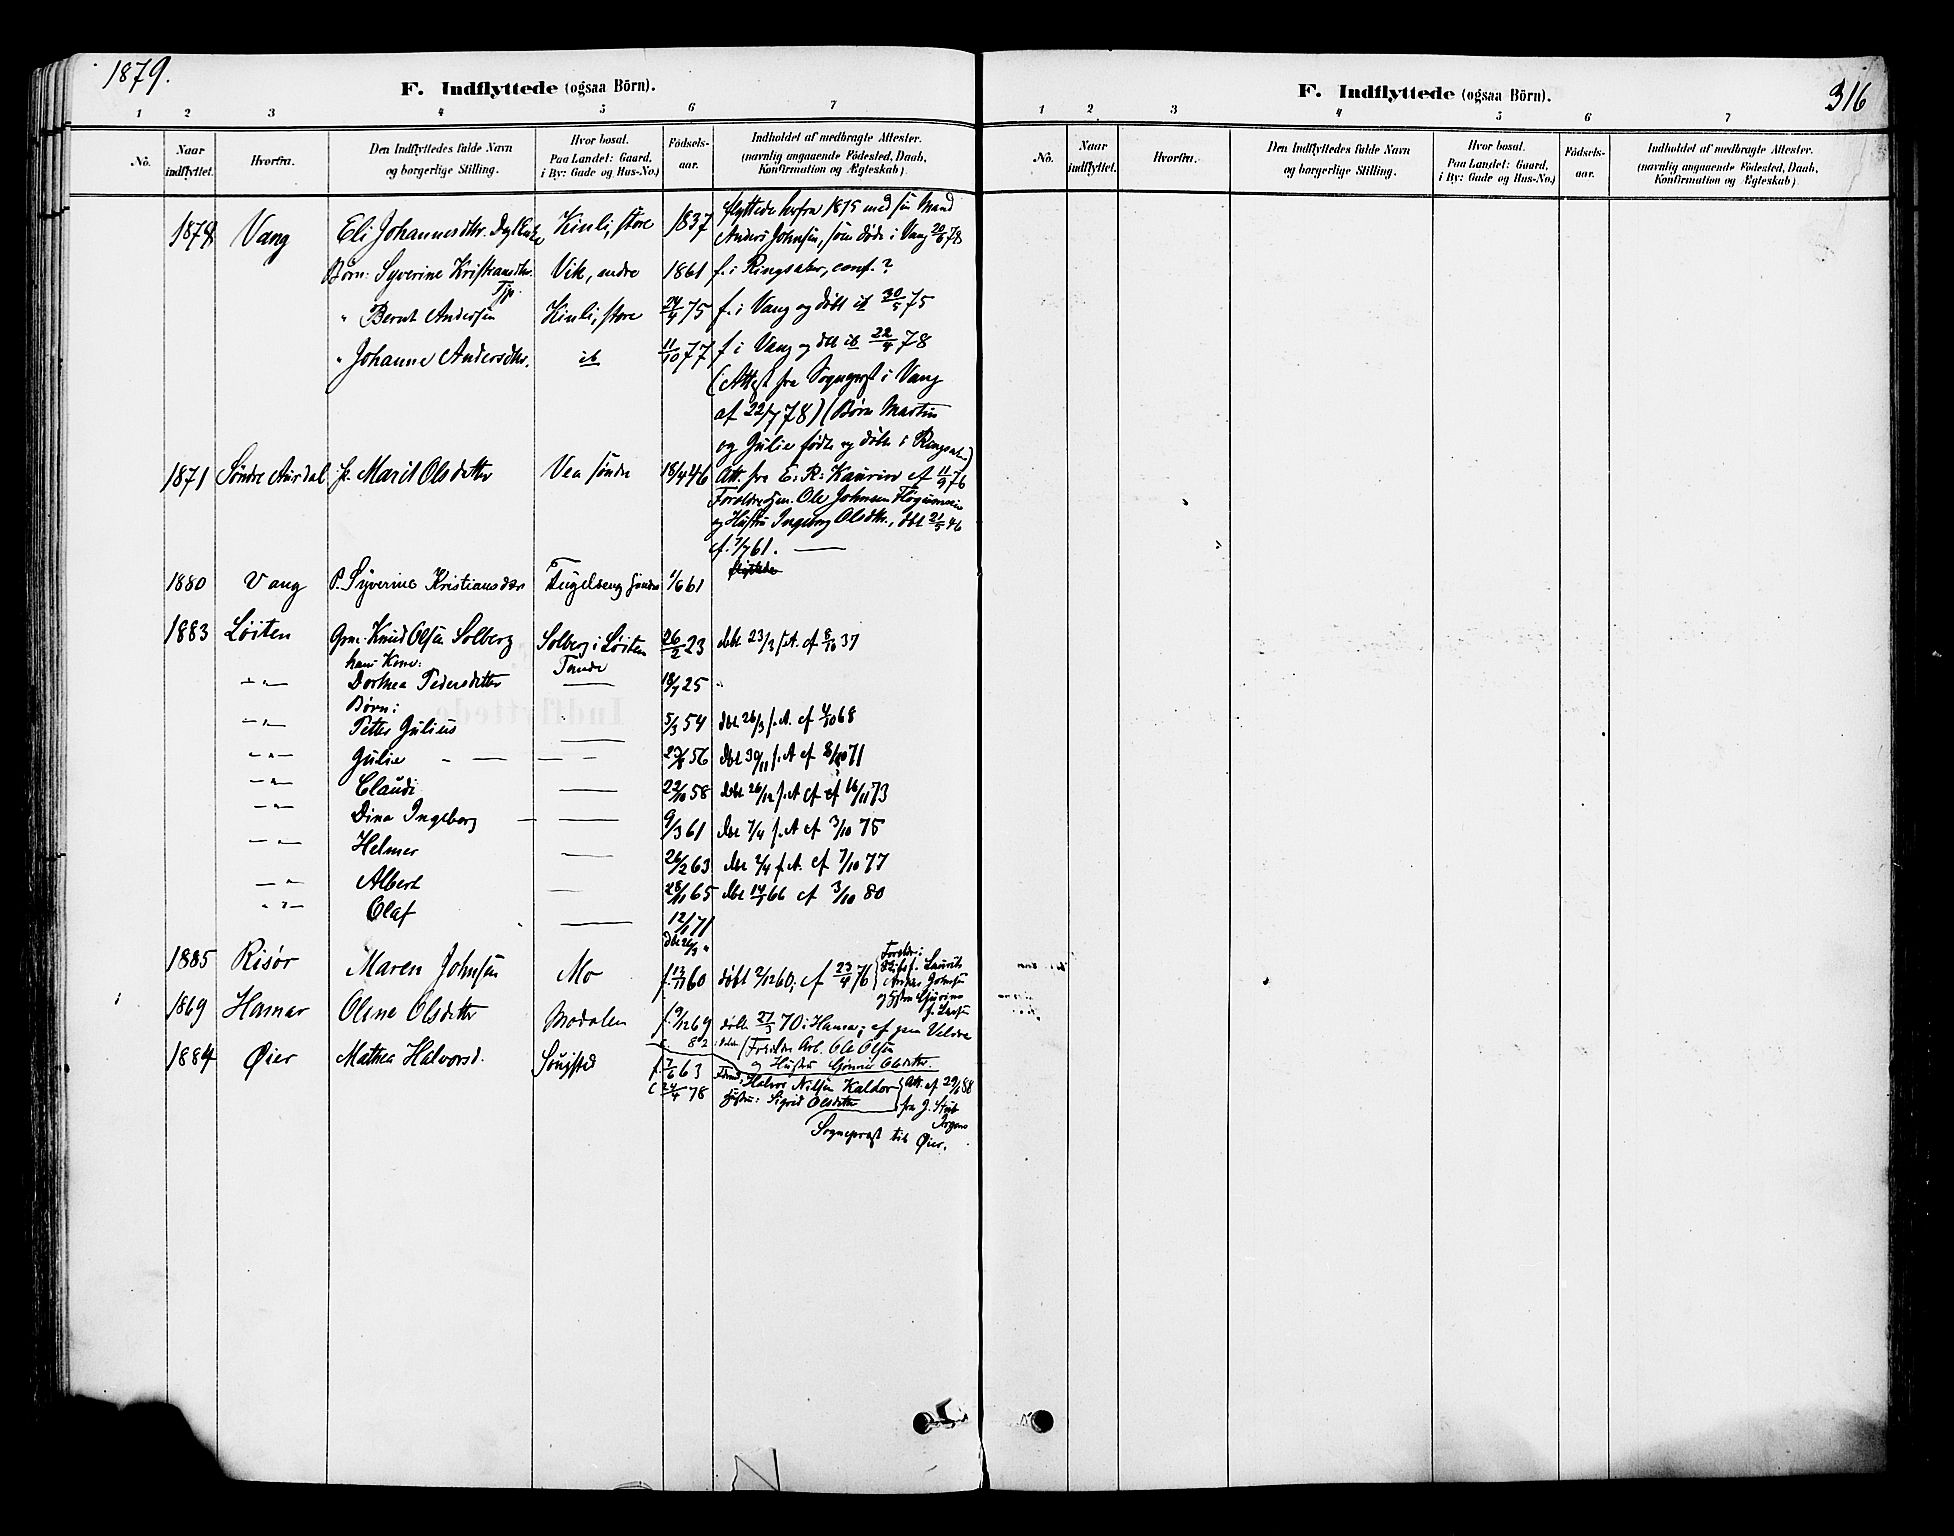 1879.
F. Indflyttede (ogsaa Börn).
1 2 3 4 5 6 7
No.
Naar indflyttet.
Hvorfra.
Den Indflyttedes fulde Navn og borgerlige Stilling.
Hvor bosat. Paa Landet: Gaard, i By: Gade og Hus-No.)
Födsels-aar.
Indholdet af medbragte Attester. (navnlig angaaende Födested, Daab, Konfirmation og Ægteskab)
flyttede herfra 1875 med sin Mand
1878 Vang Eli Johannesdtr. Kinli, store 1837
Anders Johnsen, som døde i Vang 20/6 78
Børn: Syverine Kristiansdtr. Vik, nedre 1861 f. i Ringsaker, conf. ?
" Bernt Andersen Kinli, store 24/4 75 f. i Vang og døbt ib 30/5 75
" Johanne Andersdtr. ib 11/10 77 f i Vang og dbt ib 22/4 78
(Attest fra Sogneprest i Vang
af 22/7 78) (Børn Martin
og Julie fødte og døbte i Ringsaker)
1871 Søndre Aurdal p. Marit Olsdatter Vea søndre 18/4 46 Att. fra E. R. Kaurin af 11/9 76
Forældre: Gm. Ole Johnsen
og Hustru Ingeborg Olsdtr., dbt 21/5 46
cf. 7/7 61.
1880 Vang P. Syverine Kristiansdtr Fugelseng søndre 1/6 61
1883 Løiten Grm. Knud Olsen Solberg Solberg i Løiten 26/2 23 dbt 23/3 f. A. cf 8/10 37
hans Kone: Tande
" Dorthea Pedersdatter 18/7 25
Børn:
" Petter Julius 5/3 54 dbt 26/3 f. A. cf 4/10 68
" Julie 56 dbt 30/11 f. A cf 8/10 71
" Claudi 22/10 58 dbt 26/12 f. A cf 16/11 73
" Dina Ingeborg 9/3 61 dbt 7/4 f. A cf 3/10 75
" Helmer 26/2 63 dbt 2/4 f. A. cf 7/10 77
" Albert 28/11 65 dbt 14/1 66 cf 3/10 80
" Olaf 12/1 71
dbt 26/3 "
1885 Risør Maren Johnsen Mo f. 13/11 60 døbt 2/12 60; cf 23/4 76
Foreldre:
Laurits
Andreas Johnsen
og Hustru
1869 Hamar Oline Olsdatter Modalen f. 9/12 69 døbt 27/3 70 i Hamar; cf 82
(Foreldre Arb. Ole Olsen
og Hustru Olsdatter.
1884 Øier Mathea Halvorsd. f. 7/6 63
c 24/4 78
Halvor Nilsen Kaldor
Hustru: Sigrid Olsdatter
Att. af 29/1 88
fra J. Stub
Sogneprest til Øier.
316
F. Indflyttede (ogsaa Börn).
1 2 3 4 5 6 7
No.
Naar indflyttet.
Hvorfra.
Den Indflyttedes fulde Navn og borgerlige Stilling.
Hvor bosat. Paa Landet: Gaard, i By: Gade og Hus-No.)
Födsels-aar.
Indholdet af medbragte Attester. (navnlig angaaende Födested, Daab, Konfirmation og Ægteskab)